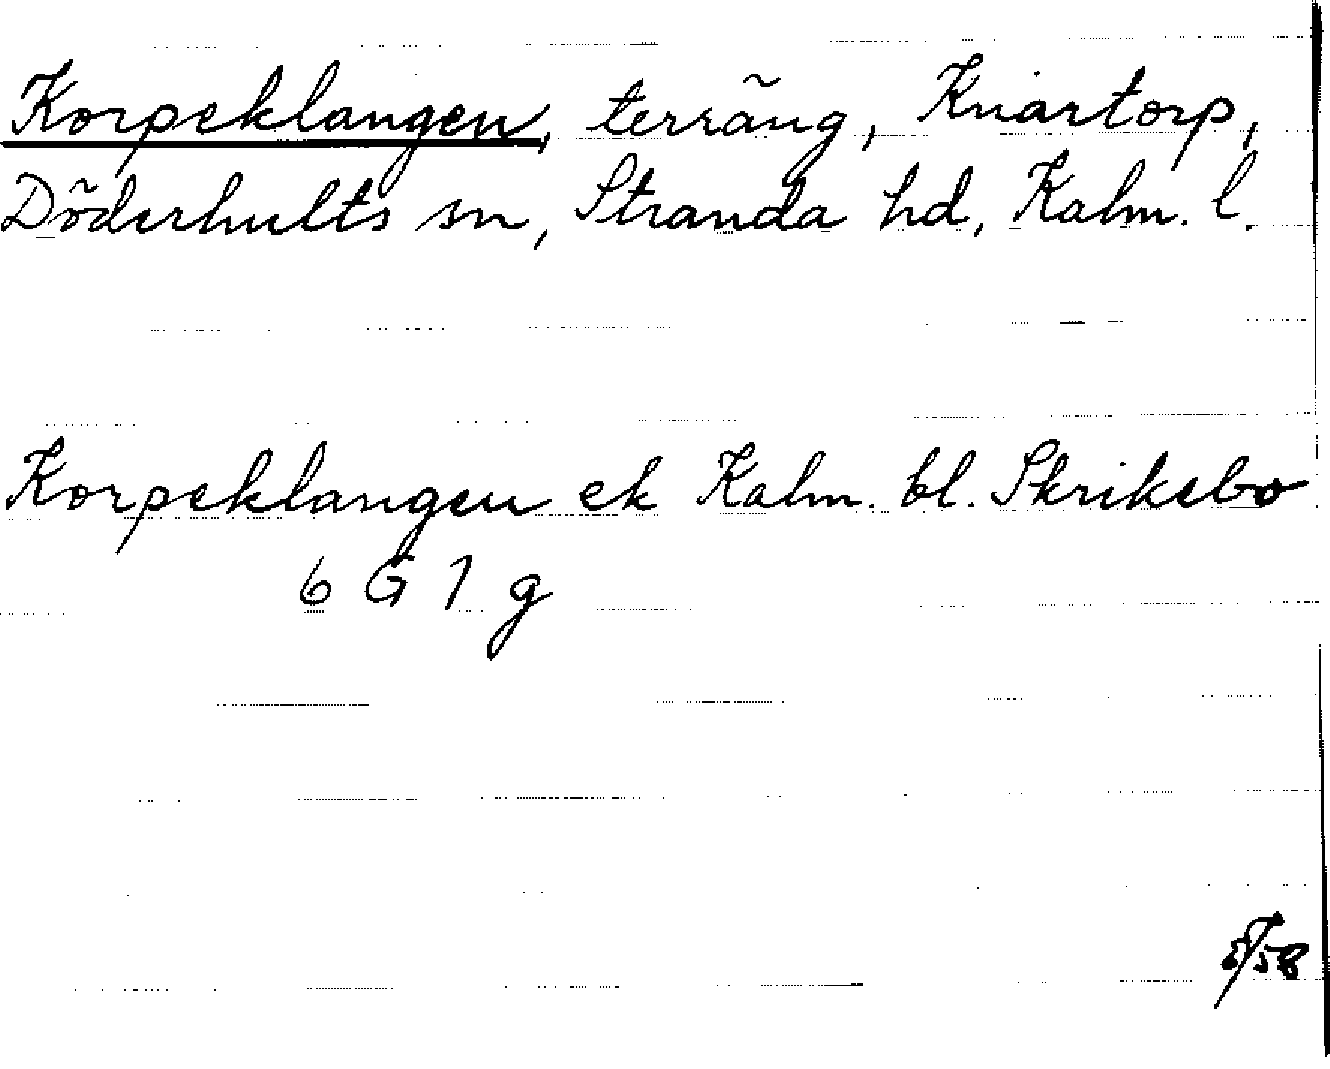 Korpeklangen, terräng, Kniartorp,
Döderhults sn, Stranda hd, Kalm. l.
Korpeklangen ek Kalm. bl. Skriksbo
6 G 7 g